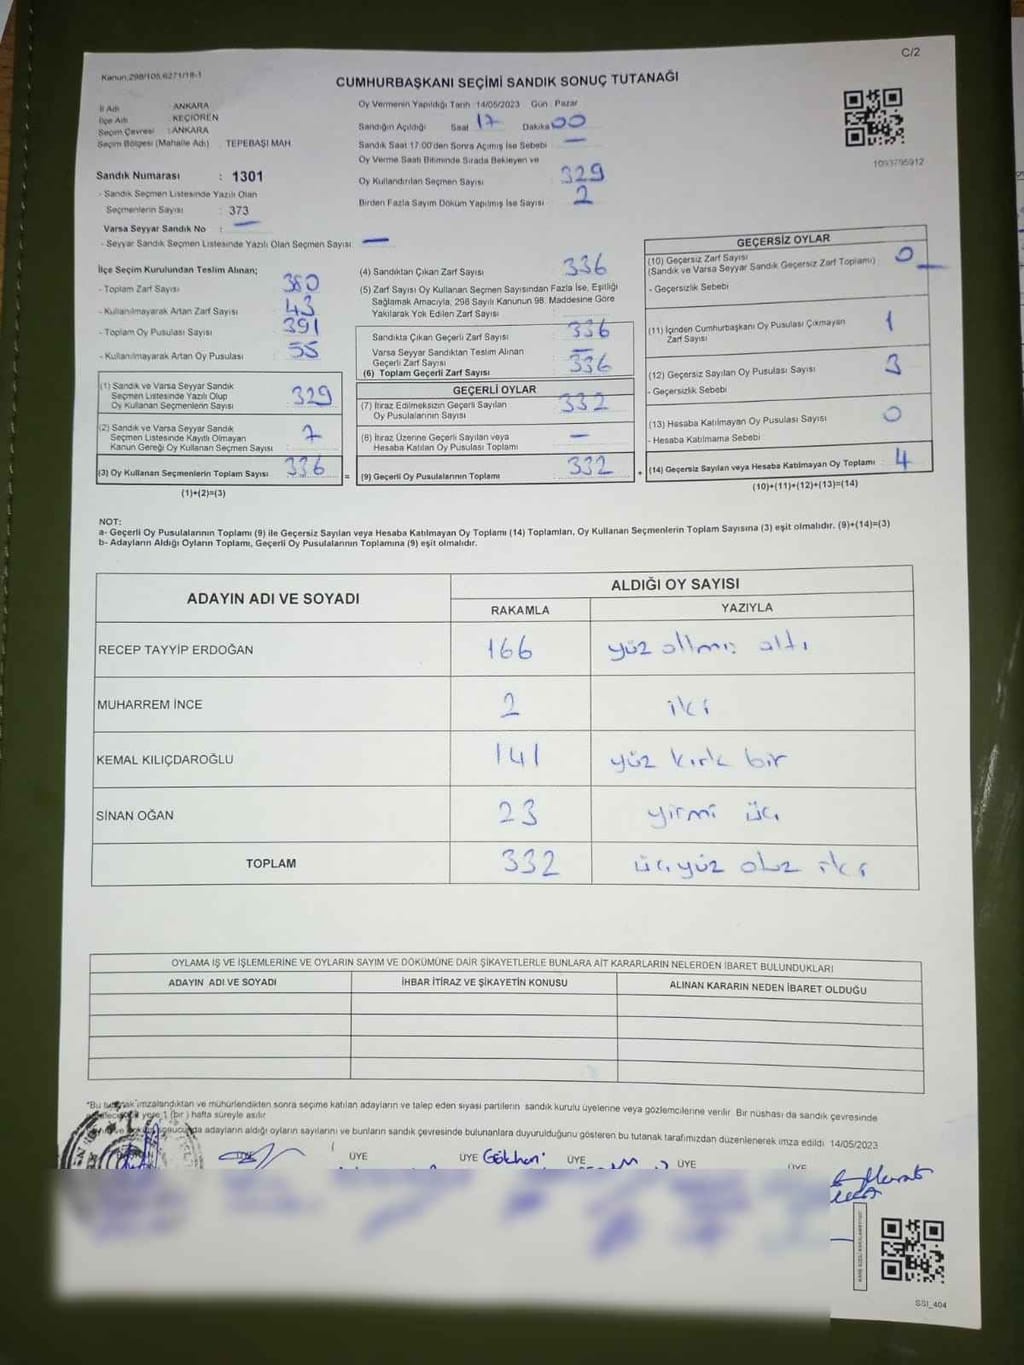 C/2
Kanun,298/105,6271/18-1
CUMHURBAŞKANI SEÇİMİ SANDIK SONUÇ TUTANAĞI
İl Adı : ANKARA
İlçe Adı : KEÇİÖREN
Seçim Çevresi : ANKARA
Seçim Bölgesi (Mahalle Adı) : TEPEBAŞI MAH.
Oy Vermenin Yapıldığı Tarih 14/05/2023 Gün Pazar
Sandığın Açıldığı Saat 17 Dakika 00
Sandık Saat 17.00'den Sonra Açılmış İse Sebebi —
Oy Verme Saati Bitiminde Sırada Bekleyen ve
Oy Kullandırılan Seçmen Sayısı 329
Birden Fazla Sayım Döküm Yapılmış İse Sayısı 2
1093795912
Sandık Numarası : 1301
- Sandık Seçmen Listesinde Yazılı Olan
Seçmenlerin Sayısı : 373
Varsa Seyyar Sandık No : —
- Seyyar Sandık Seçmen Listesinde Yazılı Olan Seçmen Sayısı: —
İlçe Seçim Kurulundan Teslim Alınan;
- Toplam Zarf Sayısı 380
- Kullanılmayarak Artan Zarf Sayısı 43
- Toplam Oy Pusulası Sayısı 391
- Kullanılmayarak Artan Oy Pusulası 55
(1) Sandık ve Varsa Seyyar Sandık
Seçmen Listesinde Yazılı Olup
Oy Kullanan Seçmenlerin Sayısı 329
(2) Sandık ve Varsa Seyyar Sandık
Seçmen Listesinde Kayıtlı Olmayan
Kanun Gereği Oy Kullanan Seçmen Sayısı 7
(3) Oy Kullanan Seçmenlerin Toplam Sayısı 336 =
(1)+(2)=(3)
(4) Sandıktan Çıkan Zarf Sayısı 336
(5) Zarf Sayısı Oy Kullanan Seçmen Sayısından Fazla İse, Eşitliği
Sağlamak Amacıyla, 298 Sayılı Kanunun 98. Maddesine Göre
Yakılarak Yok Edilen Zarf Sayısı
Sandıkta Çıkan Geçerli Zarf Sayısı 336
Varsa Seyyar Sandıktan Teslim Alınan
Geçerli Zarf Sayısı —
(6) Toplam Geçerli Zarf Sayısı 336
GEÇERLİ OYLAR
(7) İtiraz Edilmeksizin Geçerli Sayılan
Oy Pusulalarının Sayısı 332
(8) İtiraz Üzerine Geçerli Sayılan veya
Hesaba Katılan Oy Pusulası Toplamı —
(9) Geçerli Oy Pusulalarının Toplamı 332 +
GEÇERSİZ OYLAR
(10) Geçersiz Zarf Sayısı
(Sandık ve Varsa Seyyar Sandık Geçersiz Zarf Toplamı) 0
- Geçersizlik Sebebi —
(11) İçinden Cumhurbaşkanı Oy Pusulası Çıkmayan
Zarf Sayısı 1
(12) Geçersiz Sayılan Oy Pusulası Sayısı 3
- Geçersizlik Sebebi
(13) Hesaba Katılmayan Oy Pusulası Sayısı 0
- Hesaba Katılmama Sebebi
(14) Geçersiz Sayılan veya Hesaba Katılmayan Oy Toplamı 4
(10)+(11)+(12)+(13)=(14)
NOT:
a- Geçerli Oy Pusulalarının Toplamı (9) ile Geçersiz Sayılan veya Hesaba Katılmayan Oy Toplamı (14) Toplamları, Oy Kullanan Seçmenlerin Toplam Sayısına (3) eşit olmalıdır. (9)+(14)=(3)
b- Adayların Aldığı Oyların Toplamı, Geçerli Oy Pusulalarının Toplamına (9) eşit olmalıdır.
ADAYIN ADI VE SOYADI
ALDIĞI OY SAYISI
RAKAMLA YAZIYLA
RECEP TAYYİP ERDOĞAN 166 yüz altmış altı
MUHARREM İNCE 2 iki
KEMAL KILIÇDAROĞLU 141 yüz kırk bir
SİNAN OĞAN 23 yirmi üç
TOPLAM 332 üçyüz otuz iki
OYLAMA İŞ VE İŞLEMLERİNE VE OYLARIN SAYIM VE DÖKÜMÜNE DAİR ŞİKAYETLERLE BUNLARA AİT KARARLARIN NELERDEN İBARET BULUNDUKLARI
ADAYIN ADI VE SOYADI İHBAR İTİRAZ VE ŞİKAYETİN KONUSU ALINAN KARARIN NEDEN İBARET OLDUĞU
*Bu tutanak imzalandıktan ve mühürlendikten sonra seçime katılan adayların ve talep eden siyasi partilerin sandık kurulu üyelerine veya gözlemcilerine verilir. Bir nüshası da sandık çevresinde
yere 1 (bir) hafta süreyle asılır.
adayların aldığı oyların sayılarını ve bunların sandık çevresinde bulunanlara duyurulduğunu gösteren bu tutanak tarafımızdan düzenlenerek imza edildi. 14/05/2023
ÜYE ÜYE Gökhan ÜYE ÜYE ÜYE
Murat
SSI_404